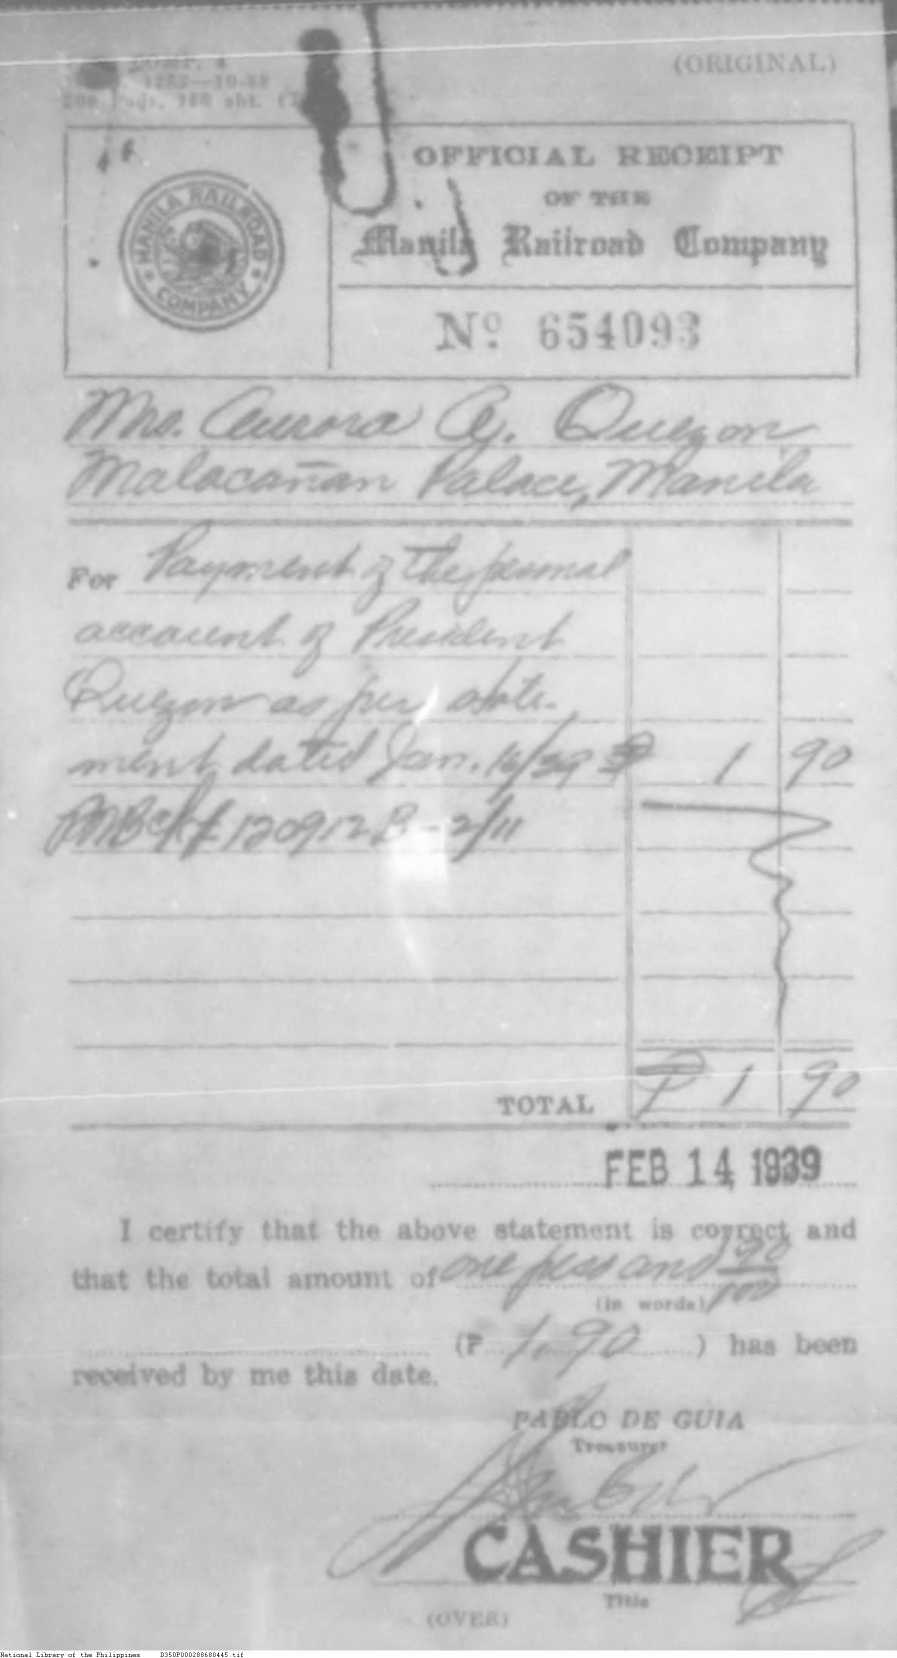 COMP. 4
(ORIGINAL)
MANILA RAILROAD COMPANY
OFFICIAL RECEIPT
OF THE
Manila Railroad Company
Nº 654093
Mrs. Aurora A. Quezon
Malacañan Palace, Manila
For Payment of the personal
account of President
Quezon as per state-
ment dated Jan. 16/39 ₱ 1 90
PNB Ck # 120912 B - 2/11
TOTAL ₱ 1 90
FEB 14 1939
I certify that the above statement is correct and
that the total amount of one peso and 90/100
(in words)
(₱ 1.90 ) has been
received by me this date.
PABLO DE GUIA
Treasurer
CASHIER
Title
(OVER)
National Library of the Philippines D350P000288680445.tif